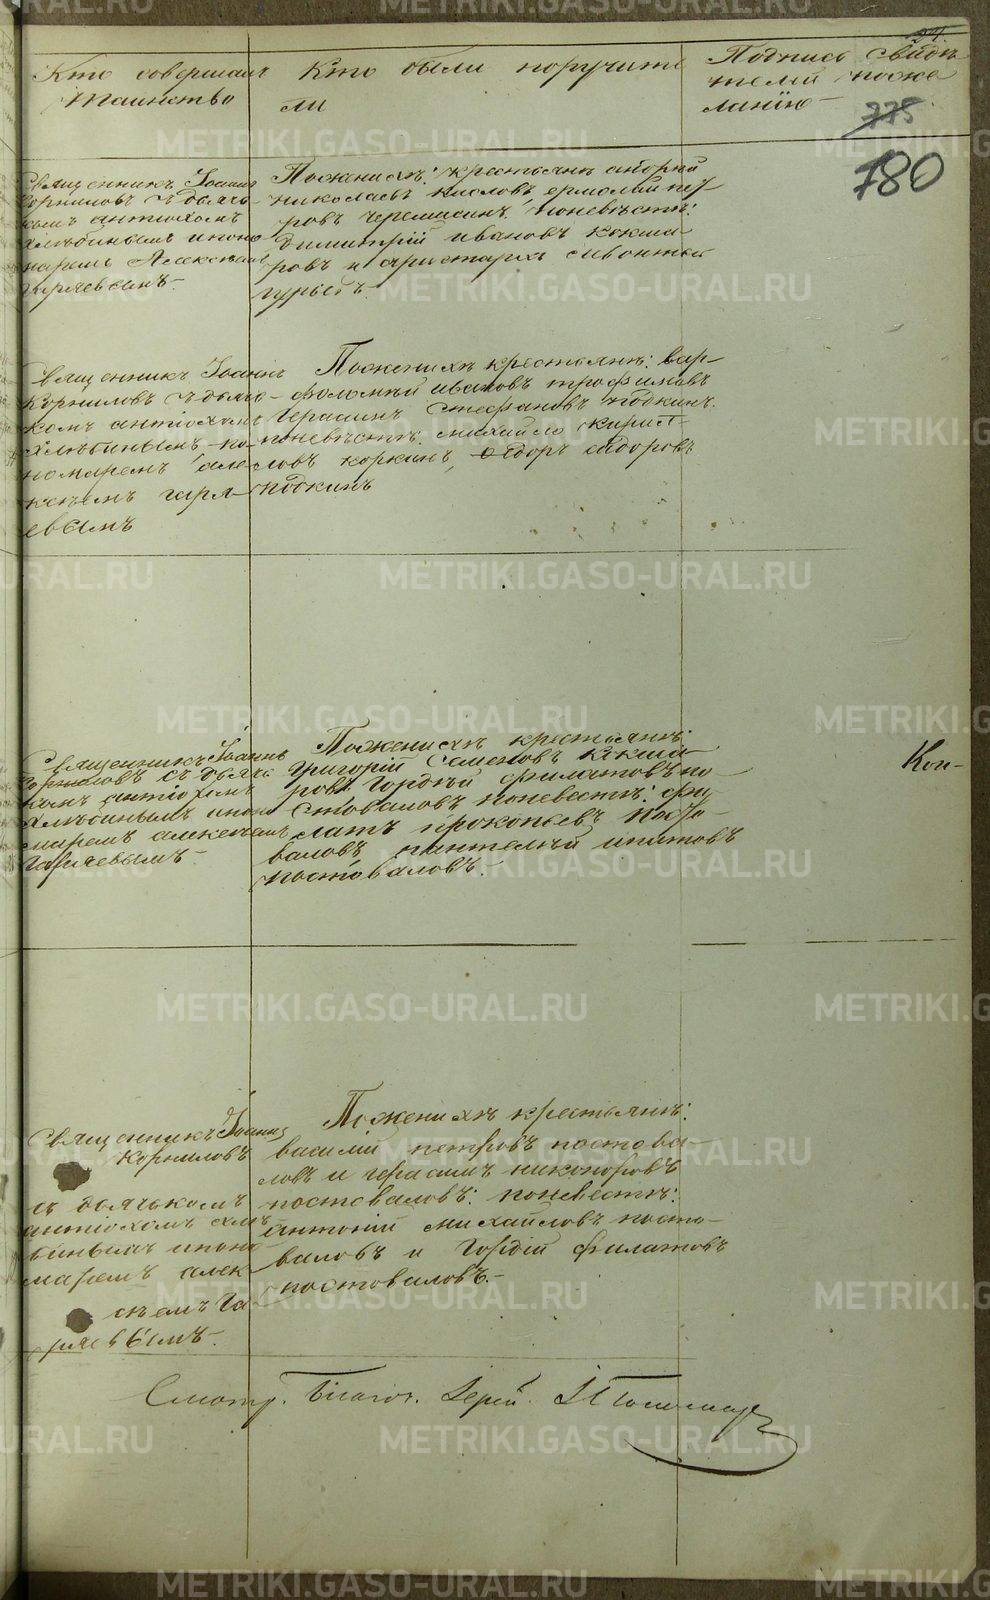 24.
Кто совершалъ
таинство
Кто были поручите
ли
Подпись свидѣ
телей по же
ланiю
775
780
Священникъ Iоаннъ
Корниловъ съ дьяч-
комъ антiохомъ
хлѣбинымъ и поно
маремъ Алексѣемъ
Гаряевымъ
По женихѣ: крестьяне андрей
николаевъ кисловъ, ермолай пет-
ровъ черемисинъ, по невѣстѣ:
Димитрiй ивановъ кокша
ровъ и аристархъ
гурьевъ.
Священникъ Iоаннъ
Корниловъ съ дьяч-
комъ антiохомъ
хлѣбинымъ по-
номаремъ але
ксѣемъ гаря-
евымъ
По женихѣ крестьяне: вар-
фоломѣй ивановъ трофимовъ
Герасимъ стефановъ подкинъ.
по невѣстѣ. михайло кирил-
ловъ коркинъ, Ѳедоръ сидоровъ
подкинъ
Священникъ Iоаннъ
Корниловъ съ дьяч
комъ антiохомъ
хлѣбинымъ и поно
маремъ алексѣемъ
Гаряевымъ
По женихѣ крестьяне:
Григорiй Семеновъ Кокша
ровъ Гордѣй филатовъ по
стоваловъ по невестѣ: фи
латъ прокопьевъ посто-
валовъ пантелей ипатовъ
постоваловъ.
Кон-
Священникъ Iоаннъ
Корниловъ
съ дьячькомъ
антiохомъ хлѣ
бинымъ и поно
маремъ алек
сѣемъ Га-
ряевымъ
По женихѣ крестьяне:
василiй петровъ постова-
ловъ и герасимъ никифоровъ
постоваловъ: по невестѣ:
антонiй михайловъ посто-
валовъ и Гордiй филатовъ
постоваловъ.
Смотр. Благоч. Iерей
METRIKI.GASO-URAL.RU